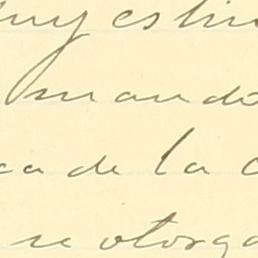 muy estim
mando
ca de la c
se otorga